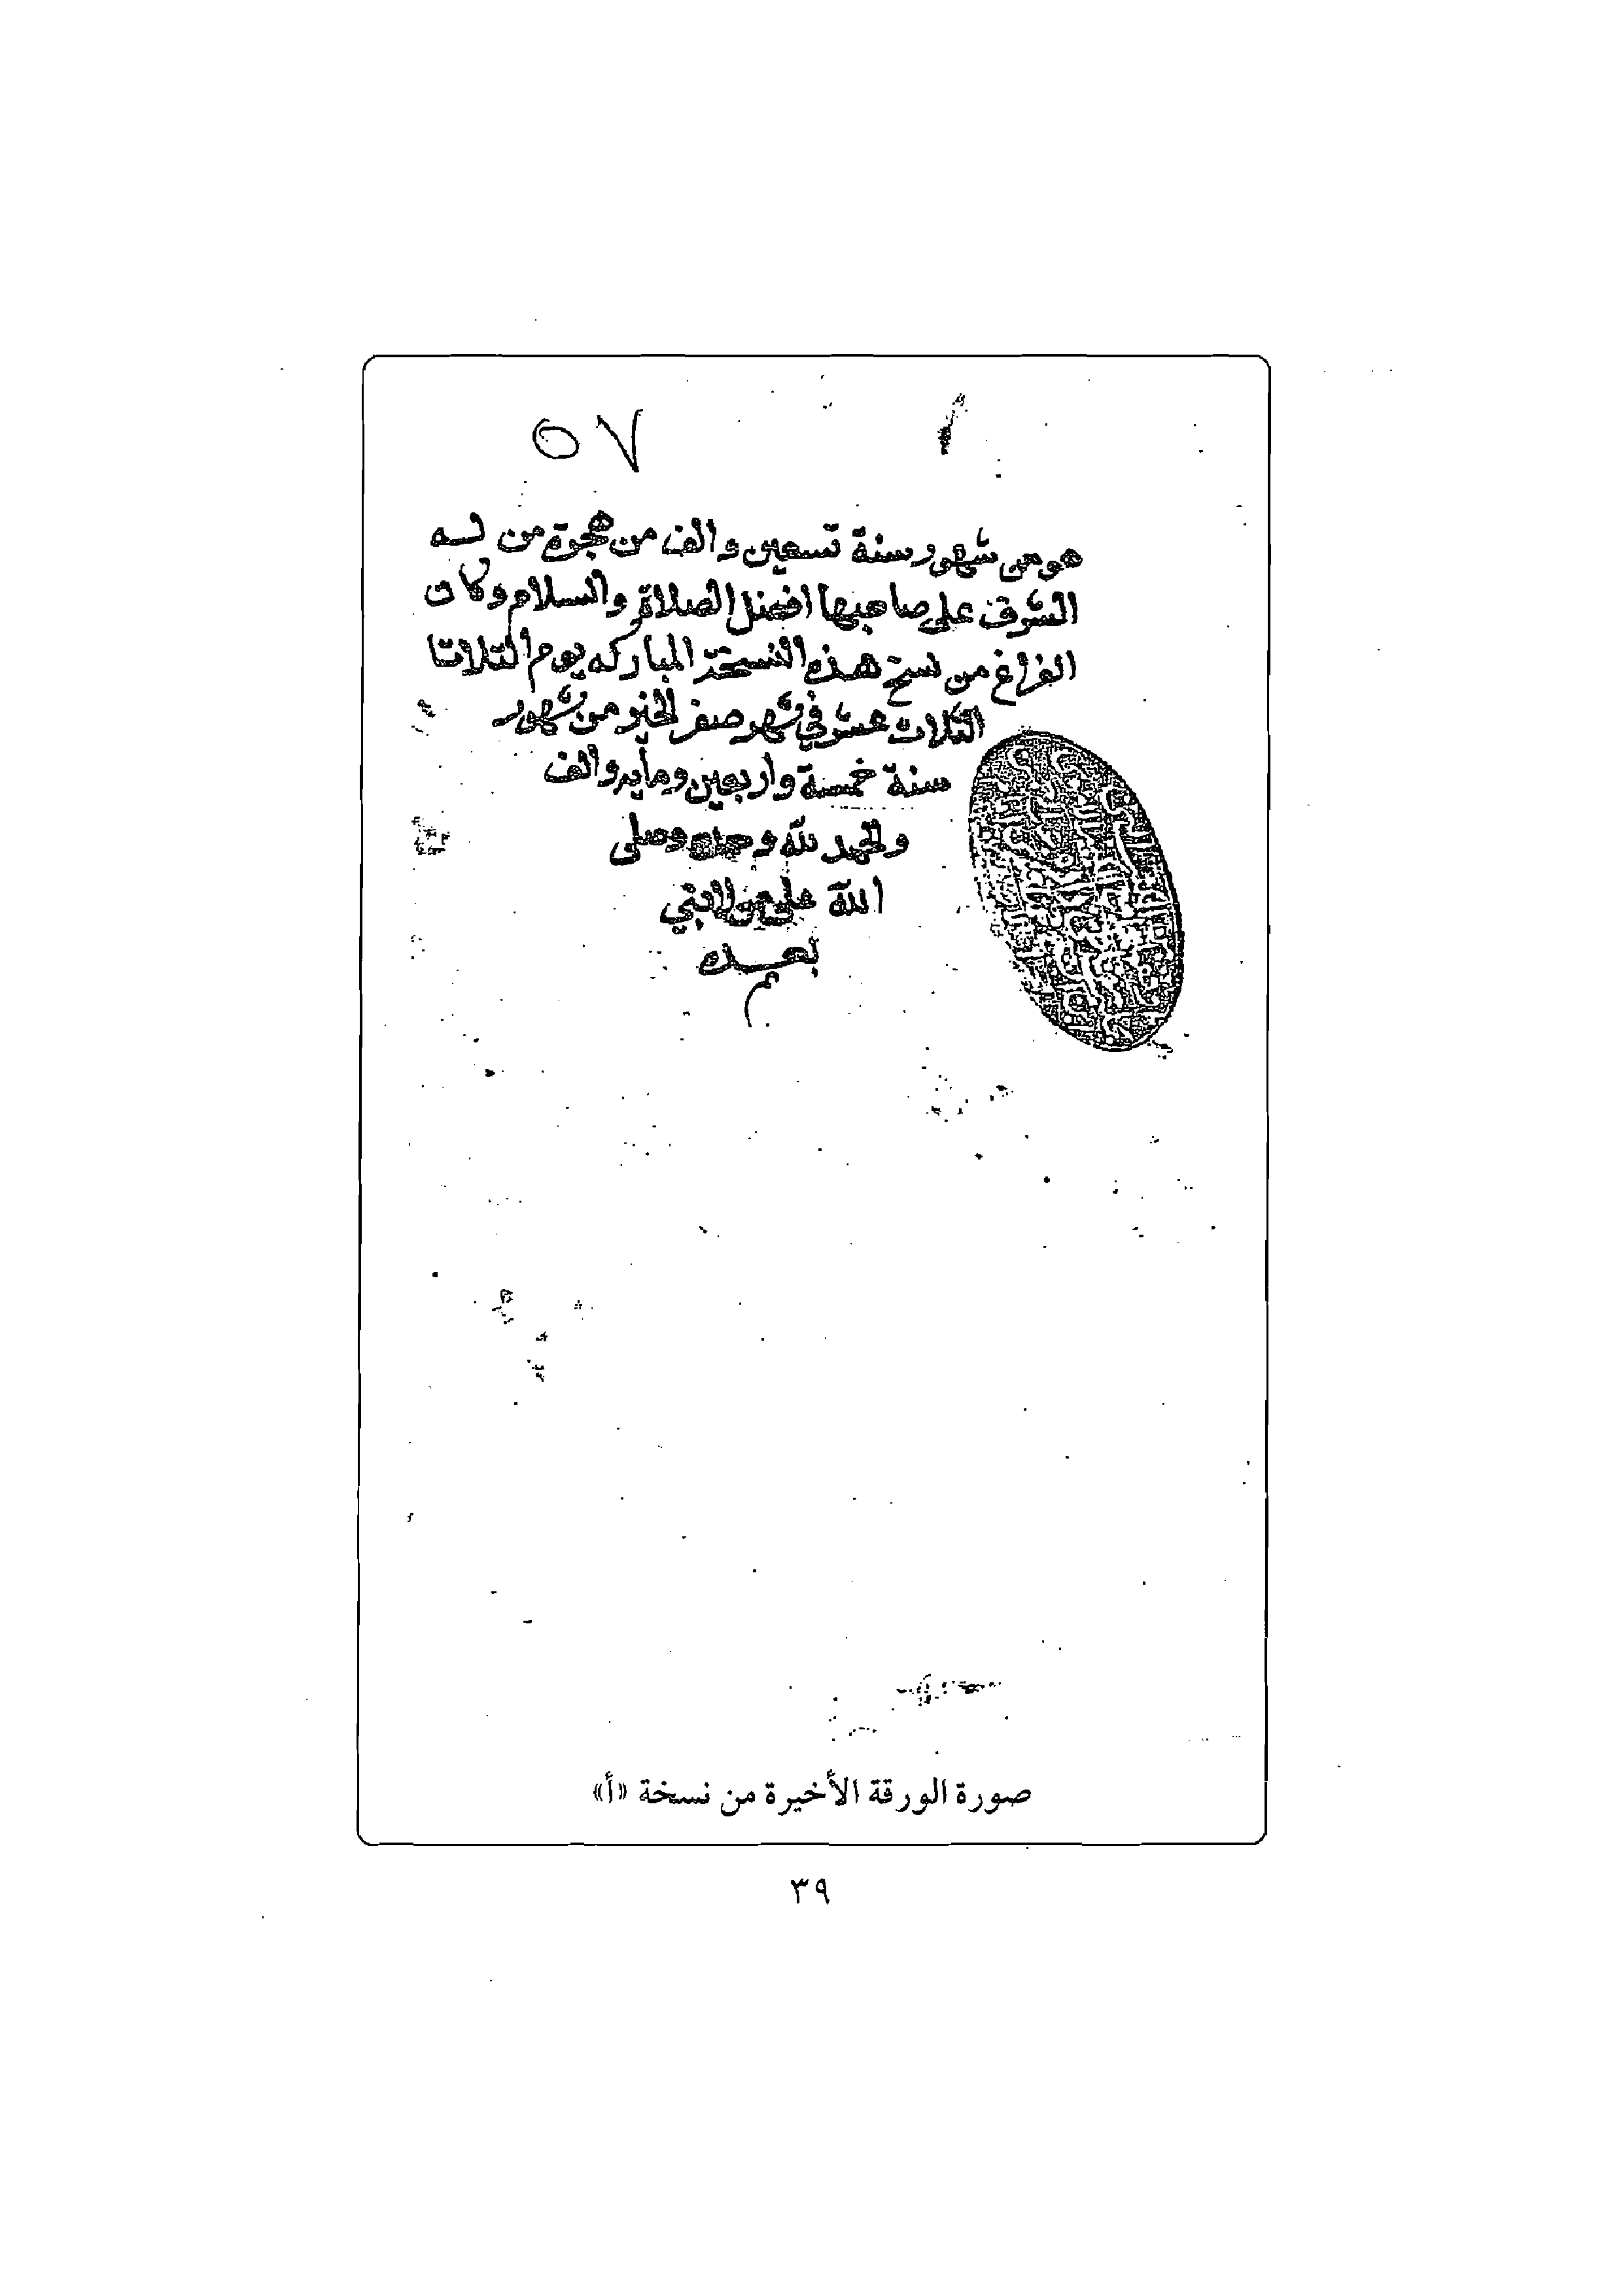 ٥٧
هو من شهور سنة تسعين والف من هجرة من له
الشرف على صاحبها افضل الصلاة والسلام وكان
الفراغ من نسخ هذه النسخة المباركه يوم التلاتا
التلات عشر في شهر صفر الخير من شهور
سنة خمسة واربعين ومايه والف
والحمد لله وحده وصلى
الله على من لا نبي
بعده
م
صورة الورقة الأخيرة من نسخة «أ»
٣٩